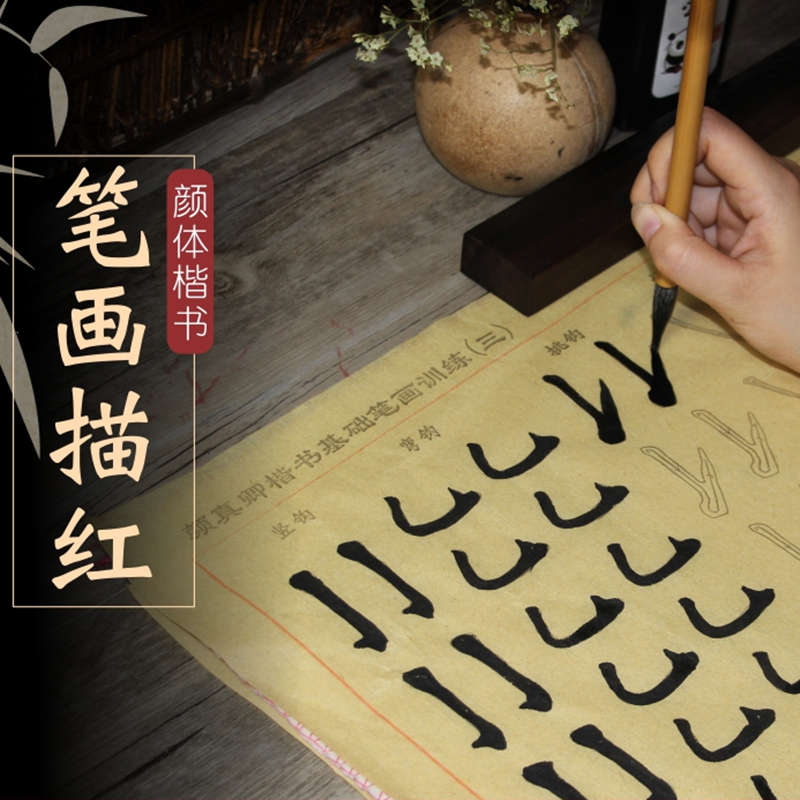 笔画描红
颜体楷书
颜真卿楷书基础笔画训练(三)
竖钩
弯钩
挑钩